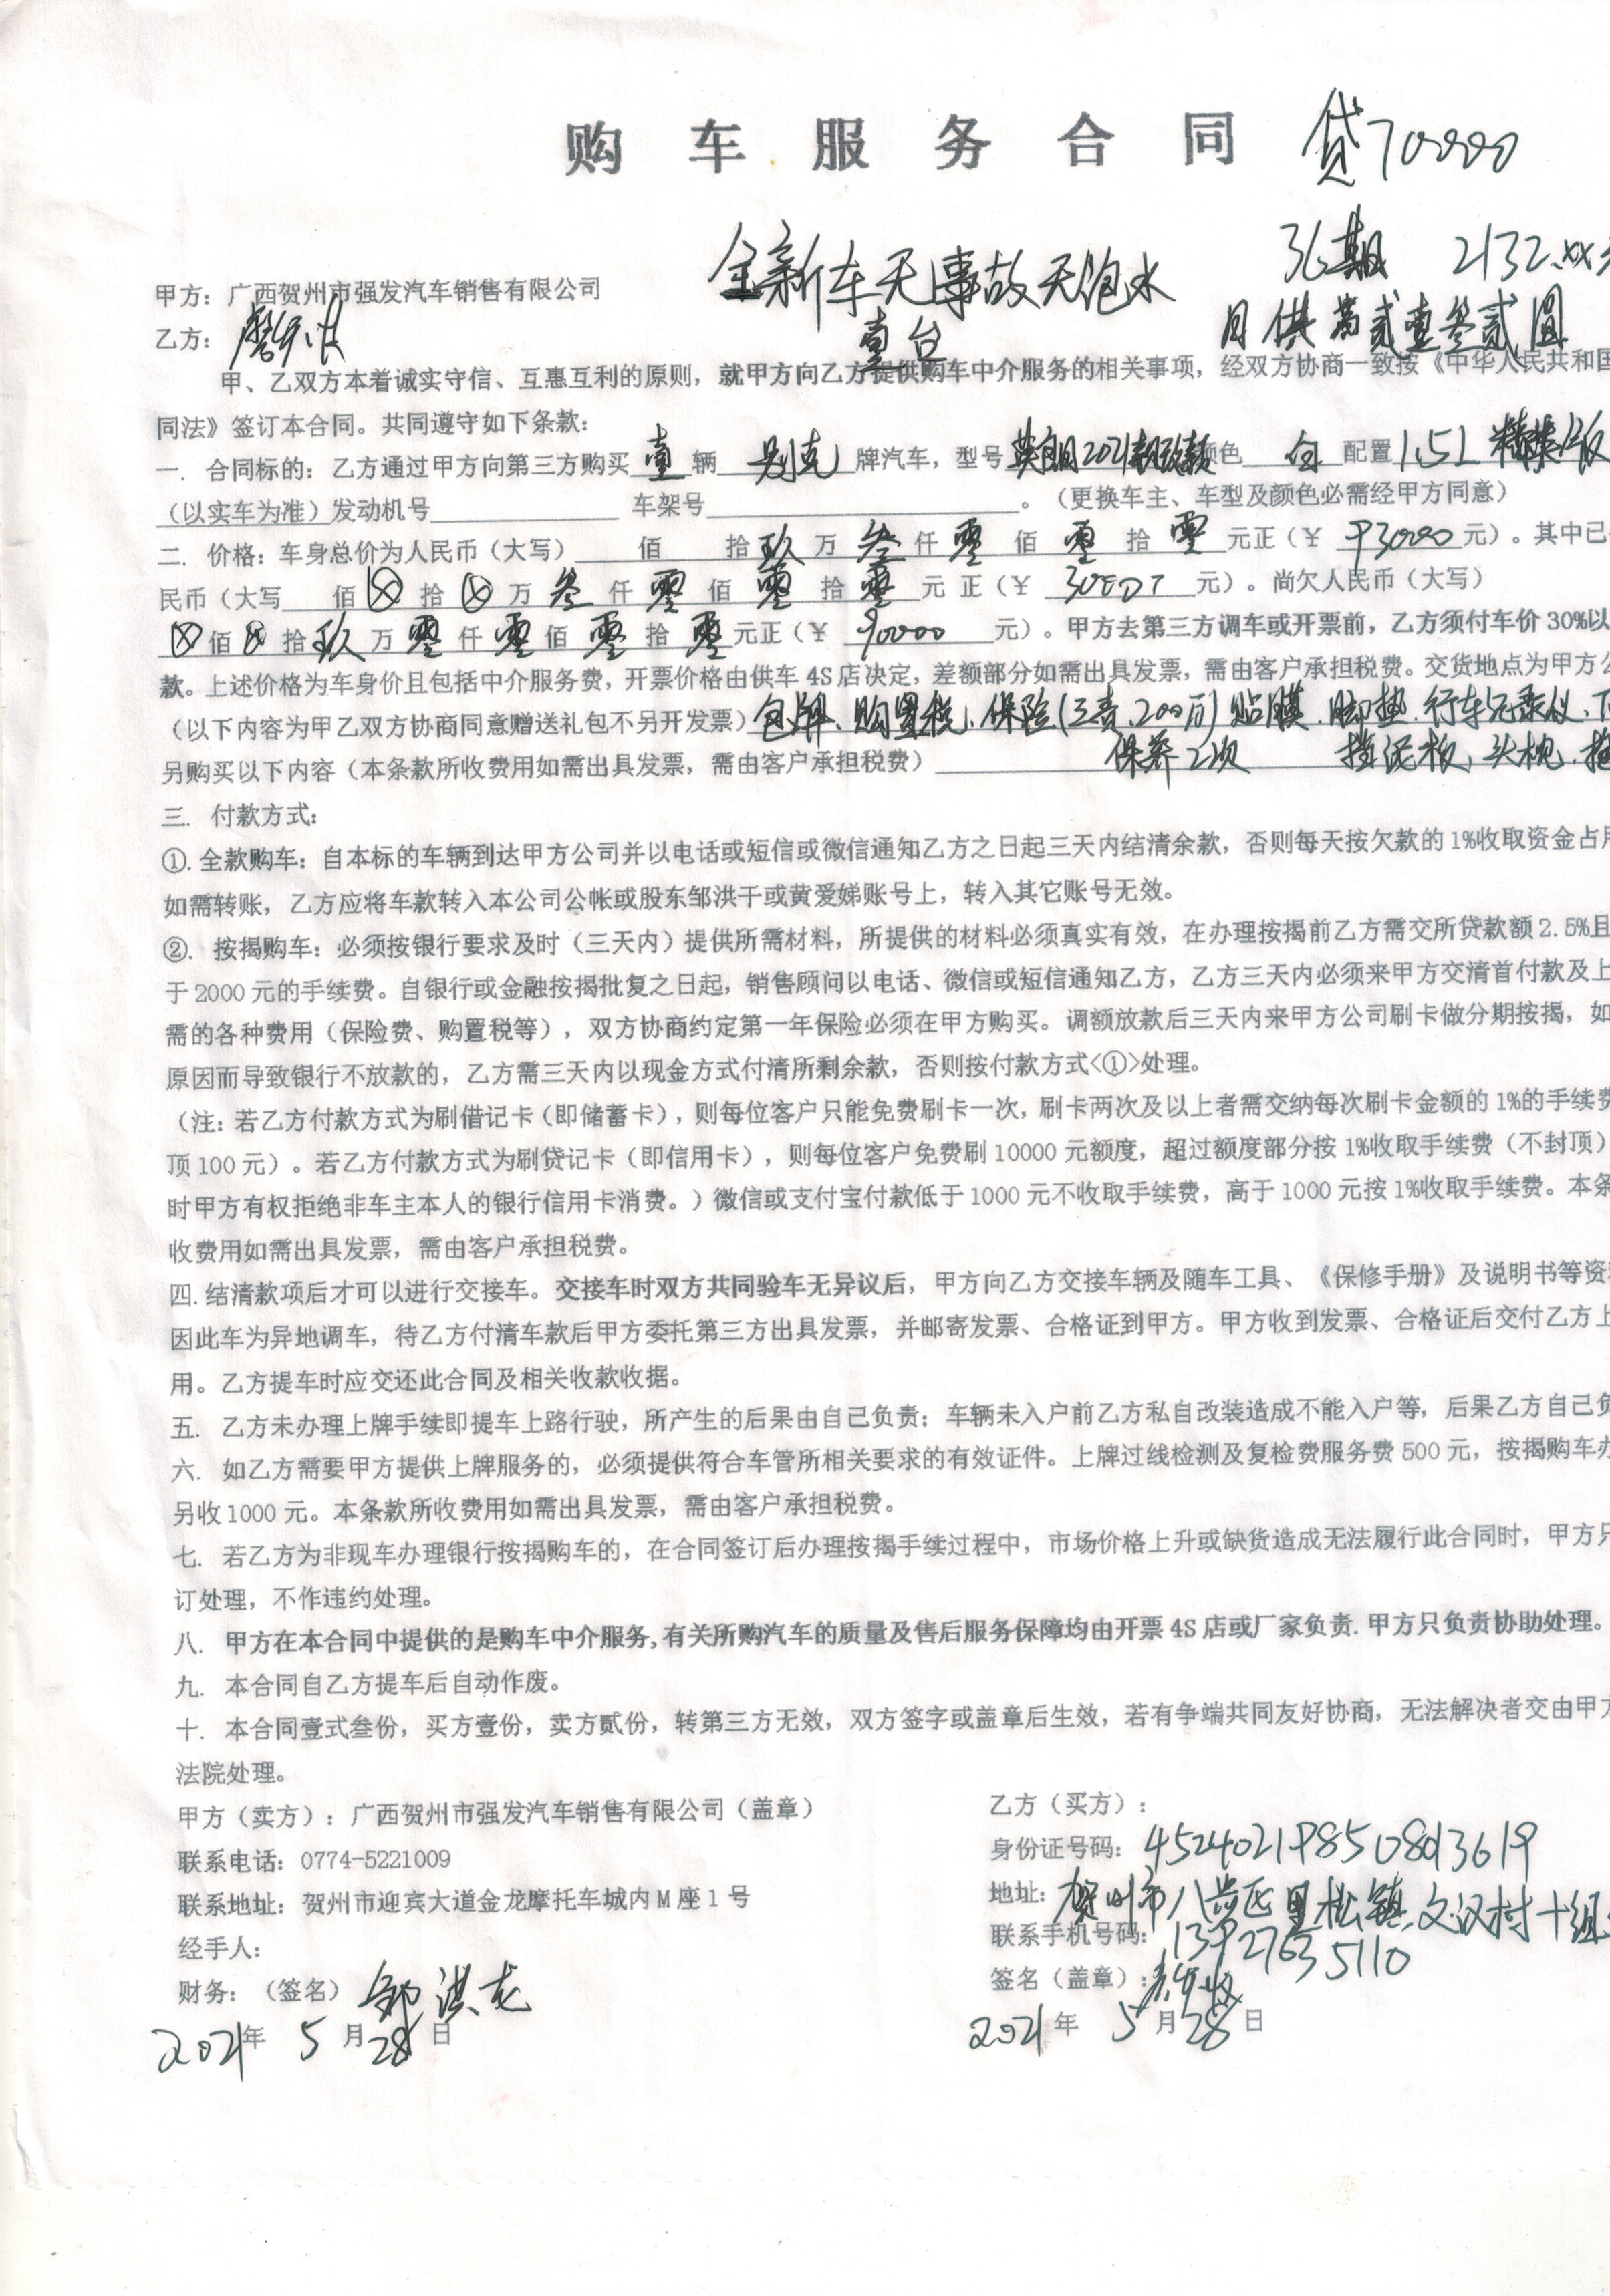 购车服务合同
贷70000
全新车无事故无泡水
壹台
36期 2132.xx
月供 贰壹叁贰圆
甲方：广西贺州市强发汽车销售有限公司
乙方：
甲、乙双方本着诚实守信、互惠互利的原则，就甲方向乙方提供购车中介服务的相关事项，经双方协商一致按《中华人民共和国
同法》签订本合同。共同遵守如下条款：
一. 合同标的：乙方通过甲方向第三方购买壹辆别克牌汽车，型号英朗2021款 颜色白 配置1.5L 精英版
（以实车为准）发动机号 车架号 。（更换车主、车型及颜色必需经甲方同意）
二. 价格：车身总价为人民币（大写） 佰 拾玖万叁仟零佰零拾零元正（￥93000元）。其中已
民币（大写 佰⊗拾⊗万叁仟零佰零拾零元 正（￥ 元）。尚欠人民币（大写）
⊗佰⊗拾玖万零仟零佰零拾零元正（￥90000元）。甲方去第三方调车或开票前，乙方须付车价 30%以
款。上述价格为车身价且包括中介服务费，开票价格由供车 4S 店决定，差额部分如需出具发票，需由客户承担税费。交货地点为甲方公
（以下内容为甲乙双方协商同意赠送礼包不另开发票）包牌、购置税、保险（三责、200万）贴膜、脚垫、行车记录仪、
保养2次 挡泥板、头枕、
另购买以下内容（本条款所收费用如需出具发票，需由客户承担税费）
三. 付款方式：
①. 全款购车：自本标的车辆到达甲方公司并以电话或短信或微信通知乙方之日起三天内结清余款，否则每天按欠款的 1%收取资金占用
如需转账，乙方应将车款转入本公司公帐或股东邹洪干或黄爱娣账号上，转入其它账号无效。
②. 按揭购车：必须按银行要求及时（三天内）提供所需材料，所提供的材料必须真实有效，在办理按揭前乙方需交所贷款额 2.5%且
于 2000 元的手续费。自银行或金融按揭批复之日起，销售顾问以电话、微信或短信通知乙方，乙方三天内必须来甲方交清首付款及上
需的各种费用（保险费、购置税等），双方协商约定第一年保险必须在甲方购买。调额放款后三天内来甲方公司刷卡做分期按揭，如
原因而导致银行不放款的，乙方需三天内以现金方式付清所剩余款，否则按付款方式<①>处理。
（注：若乙方付款方式为刷借记卡（即储蓄卡），则每位客户只能免费刷卡一次，刷卡两次及以上者需交纳每次刷卡金额的 1%的手续费
顶 100 元）。若乙方付款方式为刷贷记卡（即信用卡），则每位客户免费刷 10000 元额度，超过额度部分按 1%收取手续费（不封顶）
时甲方有权拒绝非车主本人的银行信用卡消费。）微信或支付宝付款低于 1000 元不收取手续费，高于 1000 元按 1%收取手续费。本条
收费用如需出具发票，需由客户承担税费。
四. 结清款项后才可以进行交接车。交接车时双方共同验车无异议后，甲方向乙方交接车辆及随车工具、《保修手册》及说明书等资
因此车为异地调车，待乙方付清车款后甲方委托第三方出具发票，并邮寄发票、合格证到甲方。甲方收到发票、合格证后交付乙方上
用。乙方提车时应交还此合同及相关收款收据。
五. 乙方未办理上牌手续即提车上路行驶，所产生的后果由自己负责；车辆未入户前乙方私自改装造成不能入户等，后果乙方自己负
六. 如乙方需要甲方提供上牌服务的，必须提供符合车管所相关要求的有效证件。上牌过线检测及复检费服务费 500 元，按揭购车办
另收 1000 元。本条款所收费用如需出具发票，需由客户承担税费。
七. 若乙方为非现车办理银行按揭购车的，在合同签订后办理按揭手续过程中，市场价格上升或缺货造成无法履行此合同时，甲方只
订处理，不作违约处理。
八. 甲方在本合同中提供的是购车中介服务,有关所购汽车的质量及售后服务保障均由开票 4S 店或厂家负责.甲方只负责协助处理。
九. 本合同自乙方提车后自动作废。
十. 本合同壹式叁份，买方壹份，卖方贰份，转第三方无效，双方签字或盖章后生效，若有争端共同友好协商，无法解决者交由甲方
法院处理。
甲方（卖方）：广西贺州市强发汽车销售有限公司（盖章）
联系电话：0774-5221009
联系地址：贺州市迎宾大道金龙摩托车城内 M 座 1 号
经手人：
财务：（签名）邹洪
2021年 5月28日
乙方（买方）：
身份证号码：452402198508013619
地址：贺州市八步区里松镇文汉村十组
联系手机号码：13927635110
签名（盖章）：
2021年 5月28日